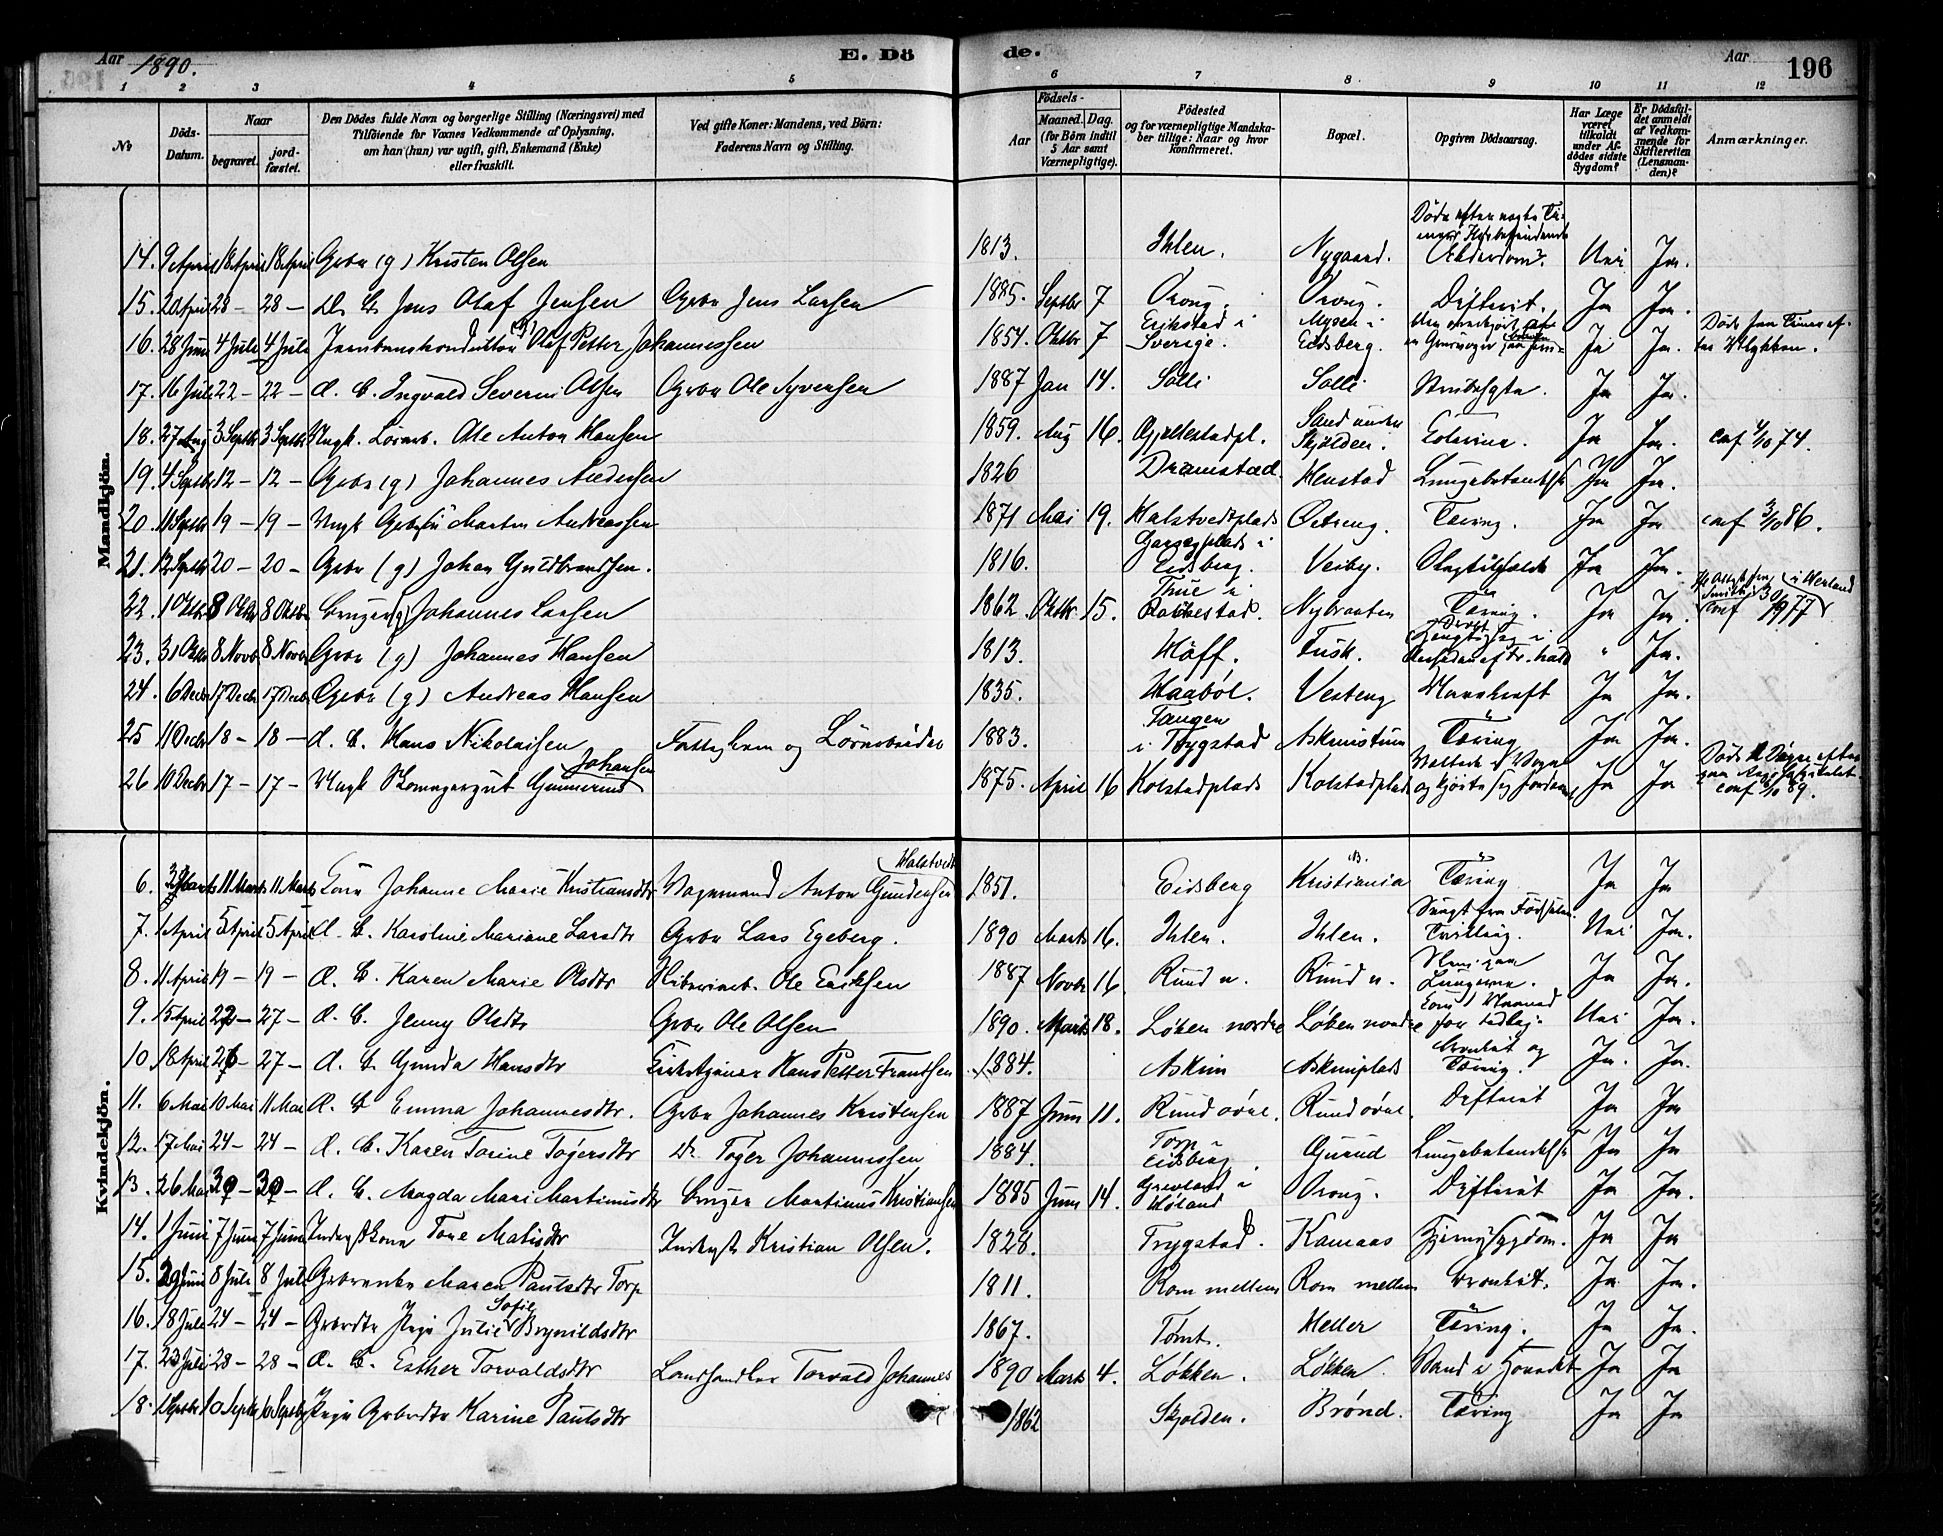 Aar 1890.
E. Dö
de.
Aar
196
1 2 3 4 5 6 7 8 9 10 11 12
No
Döds-Datum.
Naar
begravet.
jord-fæstet.
Den Dödes fulde Navn og borgerlige Stilling (Næringsvei) med
Tilföiende for Voxnes Vedkommende af Oplysning,
om han (hun) var ugift, gift, Enkemand (Enke)
eller fraskilt.
Ved gifte Koner: Mandens, ved Börn:
Faderens Navn og Stilling.
Födsels-
Aar
Maaned. Dag.
(for Börn indtil
5 Aar samt
Værnepligtige).
Födested
og for værnepligtige Mandska-
ber tillige: Naar og hvor
konfirmeret.
Bopæl.
Opgiven Dödsaarsag.
Har Læge
været
tilkaldt
under Af-
dödes sidste
Sygdom?
Er Dödsfal-
det anmeldt
af Vedkom-
mende for
Skifteretten
(Lensman-
den)?
Anmærkninger.
Mandkjön.
14. 9 April 18 April 18 April Gbr (g) Kristen Olsen 1813. Ihlen. Nygaard. Alderdom. Nei Ja.
15. 20 April 28 - 28 - D. B. Jens Olaf Jensen Gbr Jens Larsen 1885. Septbr 7 Orong. Orong. Difterit. Ja Ja.
16. 28 Juni 4 Juli 4 Juli Jernbanekonduktör (g) Olaf Petter Johannessen 1854. Oktbr 7 Erikstad i Sverige. Mysen i Eidsberg. Ja Ja.
17. 16 Juli 22 - 22 - d. B. Ingvald Severin Olsen Gbr Ole Syversen 1887 Jan 14. Solli Solli Ja Ja.
18. 27 Aug 3 Septbr 3 Septbr Ungk. Lörarb. Ole Anton Hansen 1859. Aug 16. Gjellestadpl. Sand under Skjolden. Ja Ja. conf 4/10 74.
19. 4 Septbr 12 - 12 - Gbr (g) Johannes Andersen 1826 Dramstad. Henstad Lungebetændelse Ja Ja.
20. 11 Septbr 19 - 19 - Ungk Martin Andreassen 1871 Mai 19. Halstvedtplads Östreng. Tæring. Ja Ja conf 3/10 86.
21. 12 Septbr 20 - 20 - Gbr (g) Johan Guldbrandsen. 1816. Eidsberg. Veiby. Ja Ja.
22. 1 Oktbr 8 Oktbr 8 Oktbr Bruger (g) Johannes Larsen 1862 Oktbr 15. Thue i Rakkestad. Nybraaten Tæring. Ja Ja.
23. 31 Oktbr 8 Novb 8 Novbr Gbr (g) Johannes Hansen 1813. Hoff. Fusk. " Ja.
24. 6 Decbr 17 Decbr 17 Decbr Gbr (g) Andreas Hansen 1835. Haaböl. Vesteng Mavekræft Ja Ja.
25 11 Decbr 18 - 18 - d. B. Hans Nikolaisen Fattiglem og Lörarbeider 1883. Tangen i Trygstad Askimstuen Tæring Ja Ja.
26 10 Decbr 17 - 17 - Ungk Skomagergut Gunnerius Johansen 1875. April 16 Kolstadplads Kolstadplads Ja Ja conf 89.
Kvindekjön.
6. 3 Marts 11 Marts 11 Marts Kone Johanne Marie Kristiansdtr Vognmand Anton Gundersen Halstvedt 1851. Eidsberg Kristiania Tæring Ja Ja
7. 1 April 5 April 5 April d. B. Karoline Mariane Larsdtr Gbr Lars Egeberg. 1890 Marts 16. Ihlen. Ihlen. Svagt fra Fødselen. Tvilling. Nei Ja.
8. 11 April 19 - 19 - d. B. Karen Marie Olsdtr Ole Eriksen 1887 Novbr 16. Rund n. Rund n. Lungerne. Ja Ja.
9. 15 April 27 - 27 - d. B. Jenny Olsdtr Gbr Ole Olsen 1890. Marts 18. Löken nordre Löken nordre Nei Ja.
10 18 April 26 - 27 - d. B. Gunda Hansdtr Kirketjener Hans Petter Frantsen 1884. Askim Askimplads Bronkit og Tæring. Ja. Ja.
11. 6 Mai 10 Mai 11 Mai d. B Emma Johannesdtr. Gbr Johannes Kristensen 1887 Juni 11. Rund övre. Rund övre. Difterit Ja Ja
12. 17 Mai 24 - 24 - d. B. Karen Torine Tögersdtr Do Töger Johannessen 1884. Torp i Eidsberg. Gurud Lungebetændelse Ja Ja
13. 26 Mai 30 - 30 - d. B. Magda Mari Martinusdtr Bruger Martinus Kristiansen 1885 Juni 14. Grevland i Höland Orong. Difterit Ja Ja.
14. 1 Juni 7 Juni 7 Juni Inderstkone Tone Matisdtr Inderst Kristian Olsen. 1828. Trygstad. Kamaas Hjernesygdom. Ja Ja
15. 29 Juni 8 Juli 8 Juli Gbrenke Maren Paulsdtr Torp 1811. Rom mellem Rom mellem Bronkit. Ja Ja.
16. 18 Juli 24 - 24 - Gbrdtr Pige Julie Sofie Brynildsdtr 1867. Tömt. Heller Tæring. Ja Ja.
17. 23 Juli 28 - 28 - d. B. Esther Torvaldsdtr Landhandler Torvald Johannes 1890 Marts 4. Løkken. Løkken. Vand i Hovedet Ja Ja
18. 1 Septbr 10 Septbr 10 Septbr Pige Gbrdtr Karine Paulsdtr 1862 Skjolden. Brönd. Tæring Ja Ja